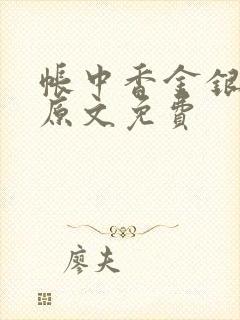 帳中香金銀
原文免費
廖夫